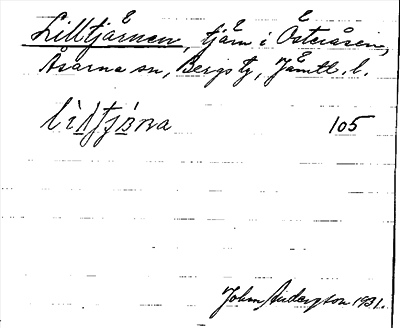 Lilltjärnen, tjärn i Österåsen,
Åsarna sn, Bergs tg, Jämtl. l.
lìltjɜ̀na 105
John Andersson 1931.